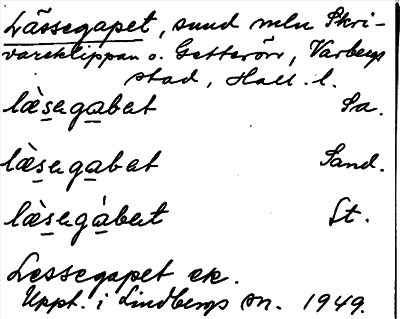 Lässegapet, sund mln Skri-
vareklippan o. Getterön, Varbergs
stad, Hall. l.
læ̀segabet Sa.
læ̀segabat Sand.
læ̀segàbet St.
Lessegapet ek.
Uppt. i Lindbergs sn. 1949.